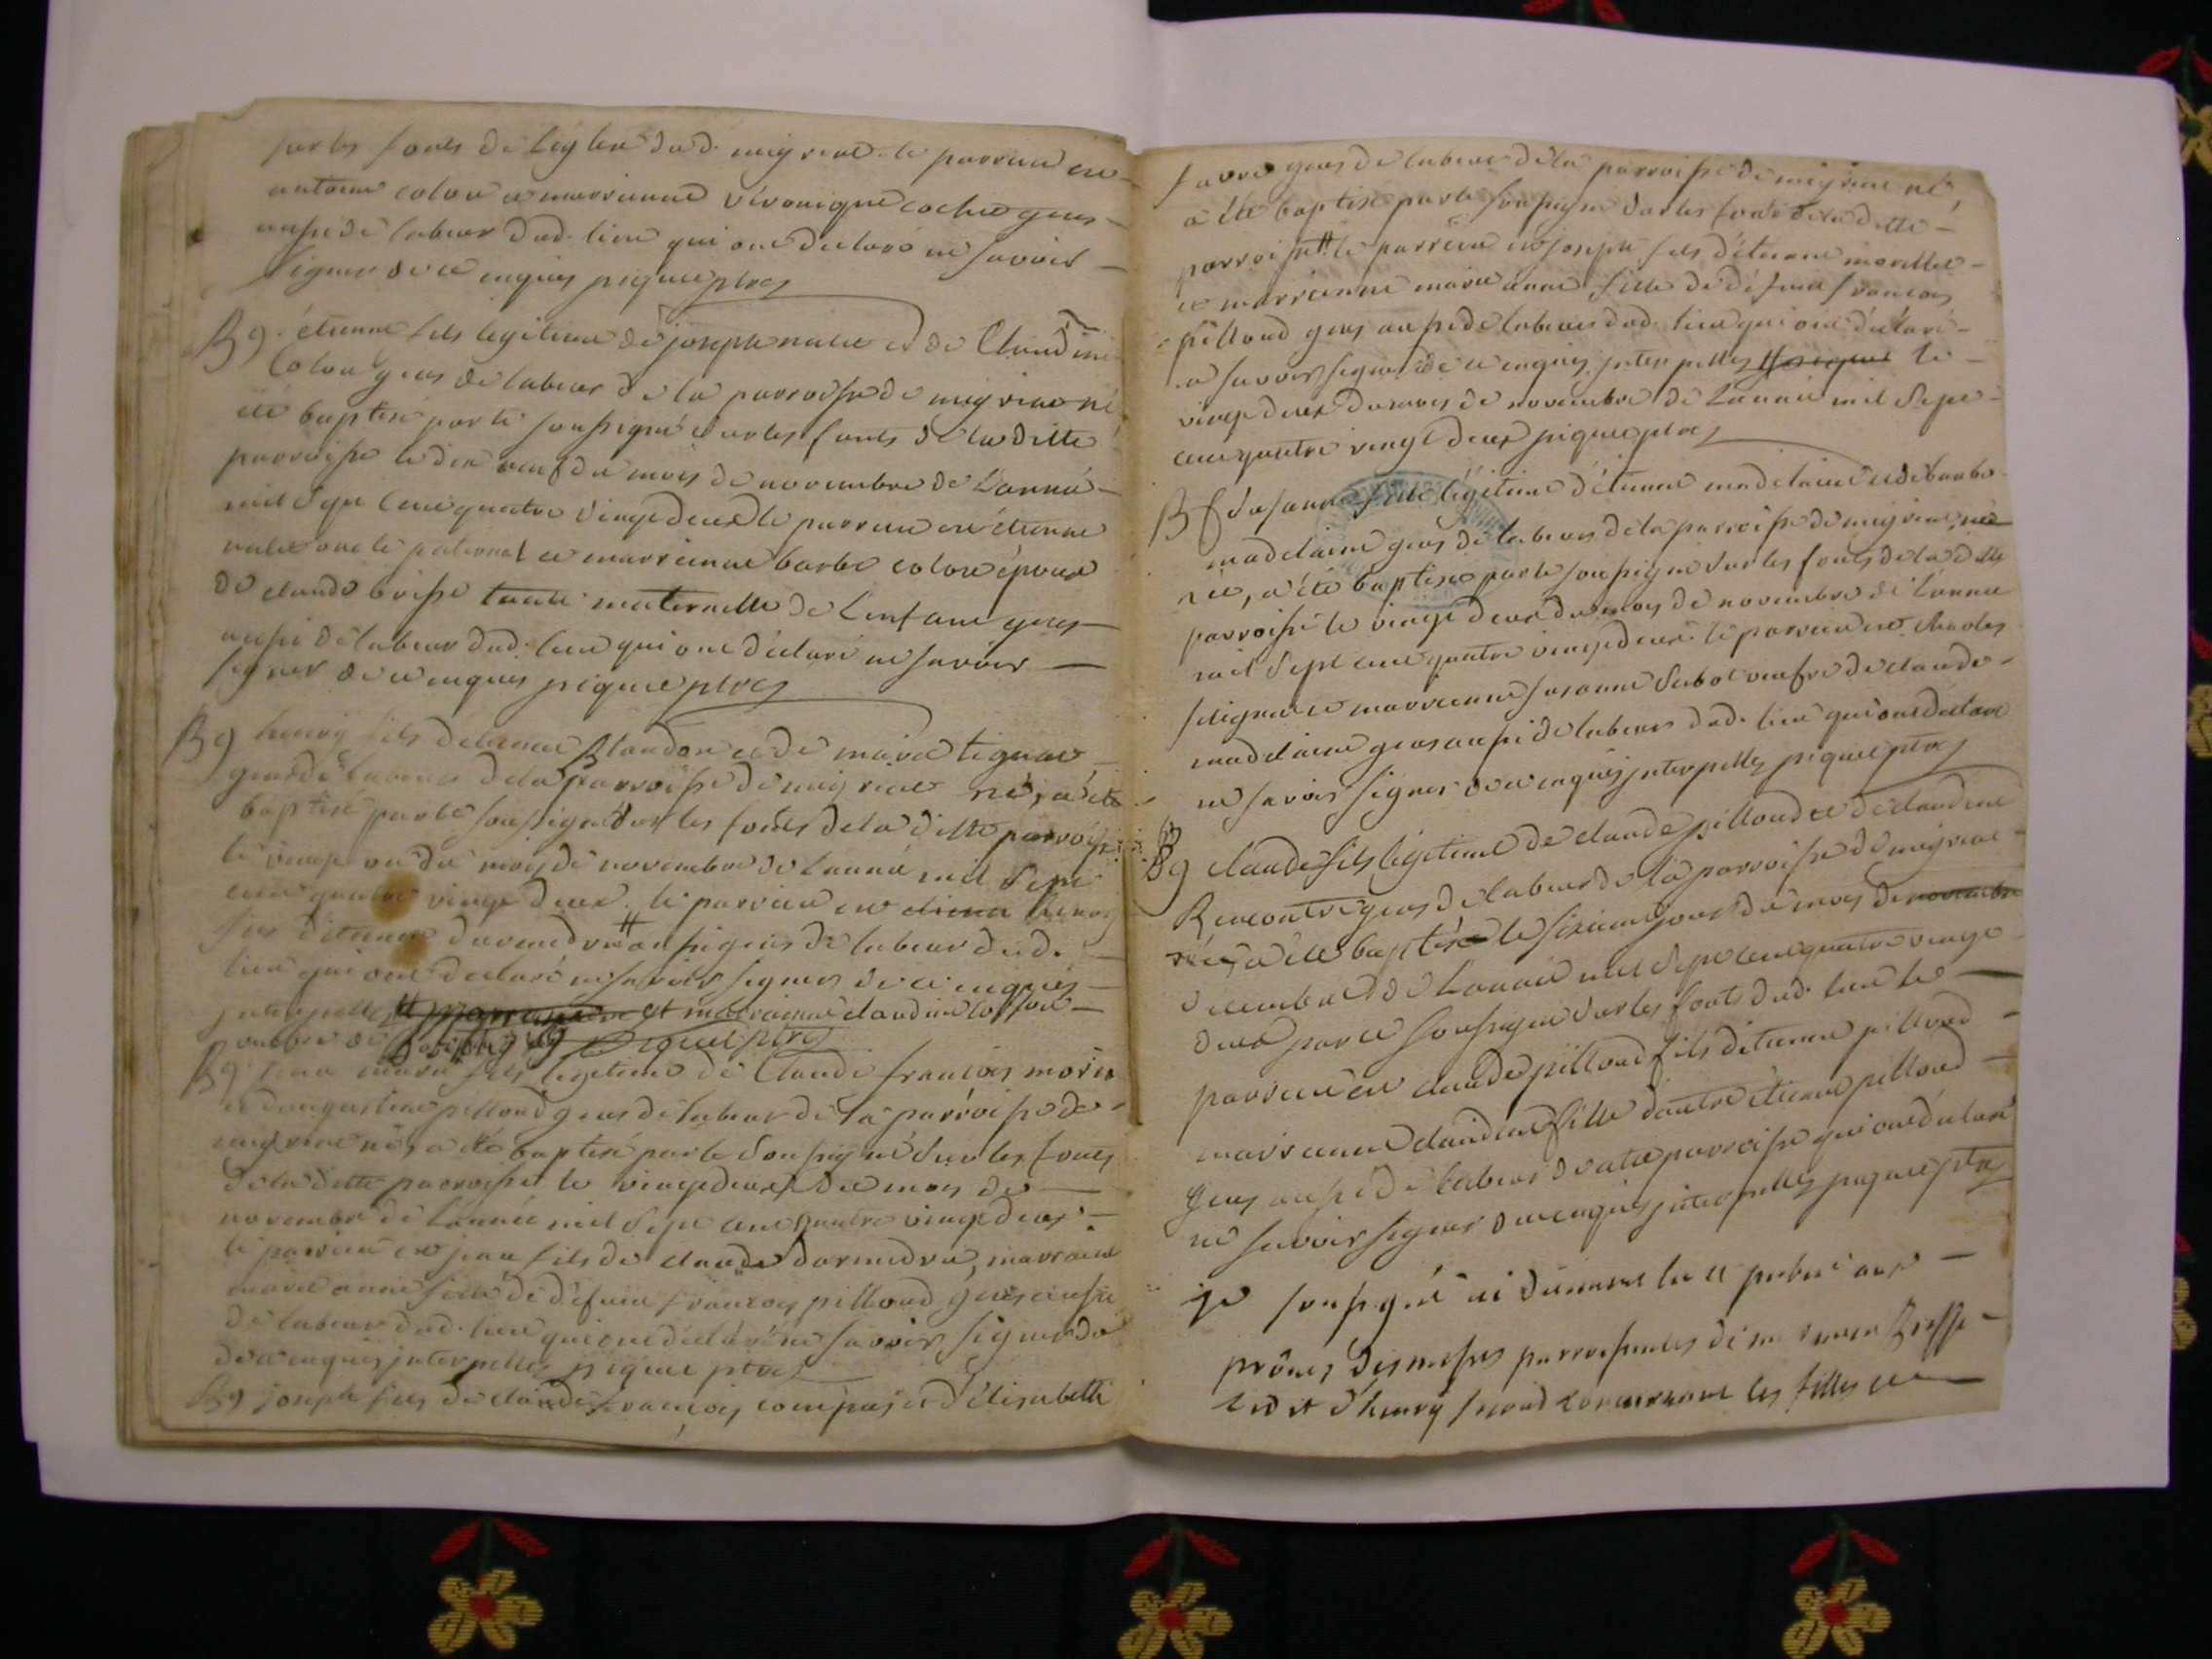 sur les fonts de leglise dud. meyriat le parrain est
antoine colon et marrienne véronique cochet gens
aussi de labeur dud. lieu qui ont declaré ne savoir
signer de ce enquis piquet ptre
Bg étienne fils legitime de joseph nalet et de Claudine
Colon gens de labeur de la parroisse de meyriat né,
été baptisé par le soussigné sur les fonts de la ditte
parroisse le dix neuf du mois de novembre de Lannée
mil Sept Cent quatre vingt deux le parrein est étienne
nalet oncle paternel et marrienne barbe colon épouse
de claude brisse tante maternelle de Lenfant gens
aussi de labeur dud. lieu qui ont déclaré ne savoir
signer de ce enquis piquet ptre
Bg henry fils détienne Blandon et de marie tignat
gens de labeur de la parroisse de meyriat né, a été
baptisé par le soussigné sur les fonts de la ditte parroisse
le vingt un du mois de novembre de Lannée mil Sept
cent quatre vingt deux. le parrein est henry
fils détienne darmedru # aussi gens de labeur dud.
lieu qui ont declaré ne savoir signer de ce enquis
interpellés # et marrienne claudine
piquet ptre
Bg jean marie fils legitime de Claude francois morin
et daugustine pilloud gens de labeur de la parroisse de
meyriat né, a été baptisé par le Soussigné Sur les fonts
de la ditte parroisse le vingt deux du mois de
novembre de Lannée mil Sept cent quatre vingt deux.
le parrein est jean fils de claude darmedru, marrienne
marie anne fille de défunt francois pilloud gens aussi
de labeur dud. lieu qui ont déclaré ne savoir signer de
de ce enquis interpellés piquet ptre
Bg joseph fils de claude francois compas et délisabeth
favre gens de labeur de la parroisse de meyriat né,
a été baptisé par le soussigné sur les fonts de la ditte
parroisse # le parrein est joseph fils détienne morellet
et marrienne marie anne fille de défunt francois
pilloud gens aussi de labeur dud. lieu qui ont déclaré
ne savoir signer de ce enquis interpellés # le
vingt deux du mois de novembre de Lannée mil Sept
cent quatre vingt deux piquet ptre
Bf Susanne fille légitime détienne madelaine et de barbe
madelaine gens de labeur de la parroisse de meyriat
née, a été baptisée par le soussigné sur les fonts de la ditte
parroisse le vingt deux du mois de novembre de Lannée
mil Sept cent quatre vingt deux le parrein est Charles
et marrienne susanne veufve de claude
madelaine gens aussi de labeur dud. lieu qui ont déclaré
ne savoir signer de ce enquis interpellés piquet ptre
Bg claude fils légitime de claude pilloud et de claudine
Rencontre gens de labeur de la parroisse de meyriat
né, a été baptisé le sixieme jour du mois de novembre
decembre de Lannée mil Sept cent quatre vingt
deux par le soussigné sur les fonts dud. lieu le
parrein est claude pilloud fils détienne pilloud
marrienne claudine fille dautre étienne pilloud
gens aussi de labeur de cette parroisse qui ont déclaré
ne savoir signer de ce enquis interpellés piquet ptre
je soussigné ai lu et publié aux
prônes des messes parroissiales
et d'henry concernant les filles